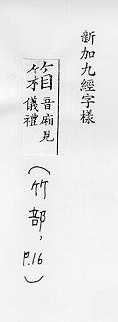 新加九經字樣
箱音廂見儀禮
（竹部，P.16）